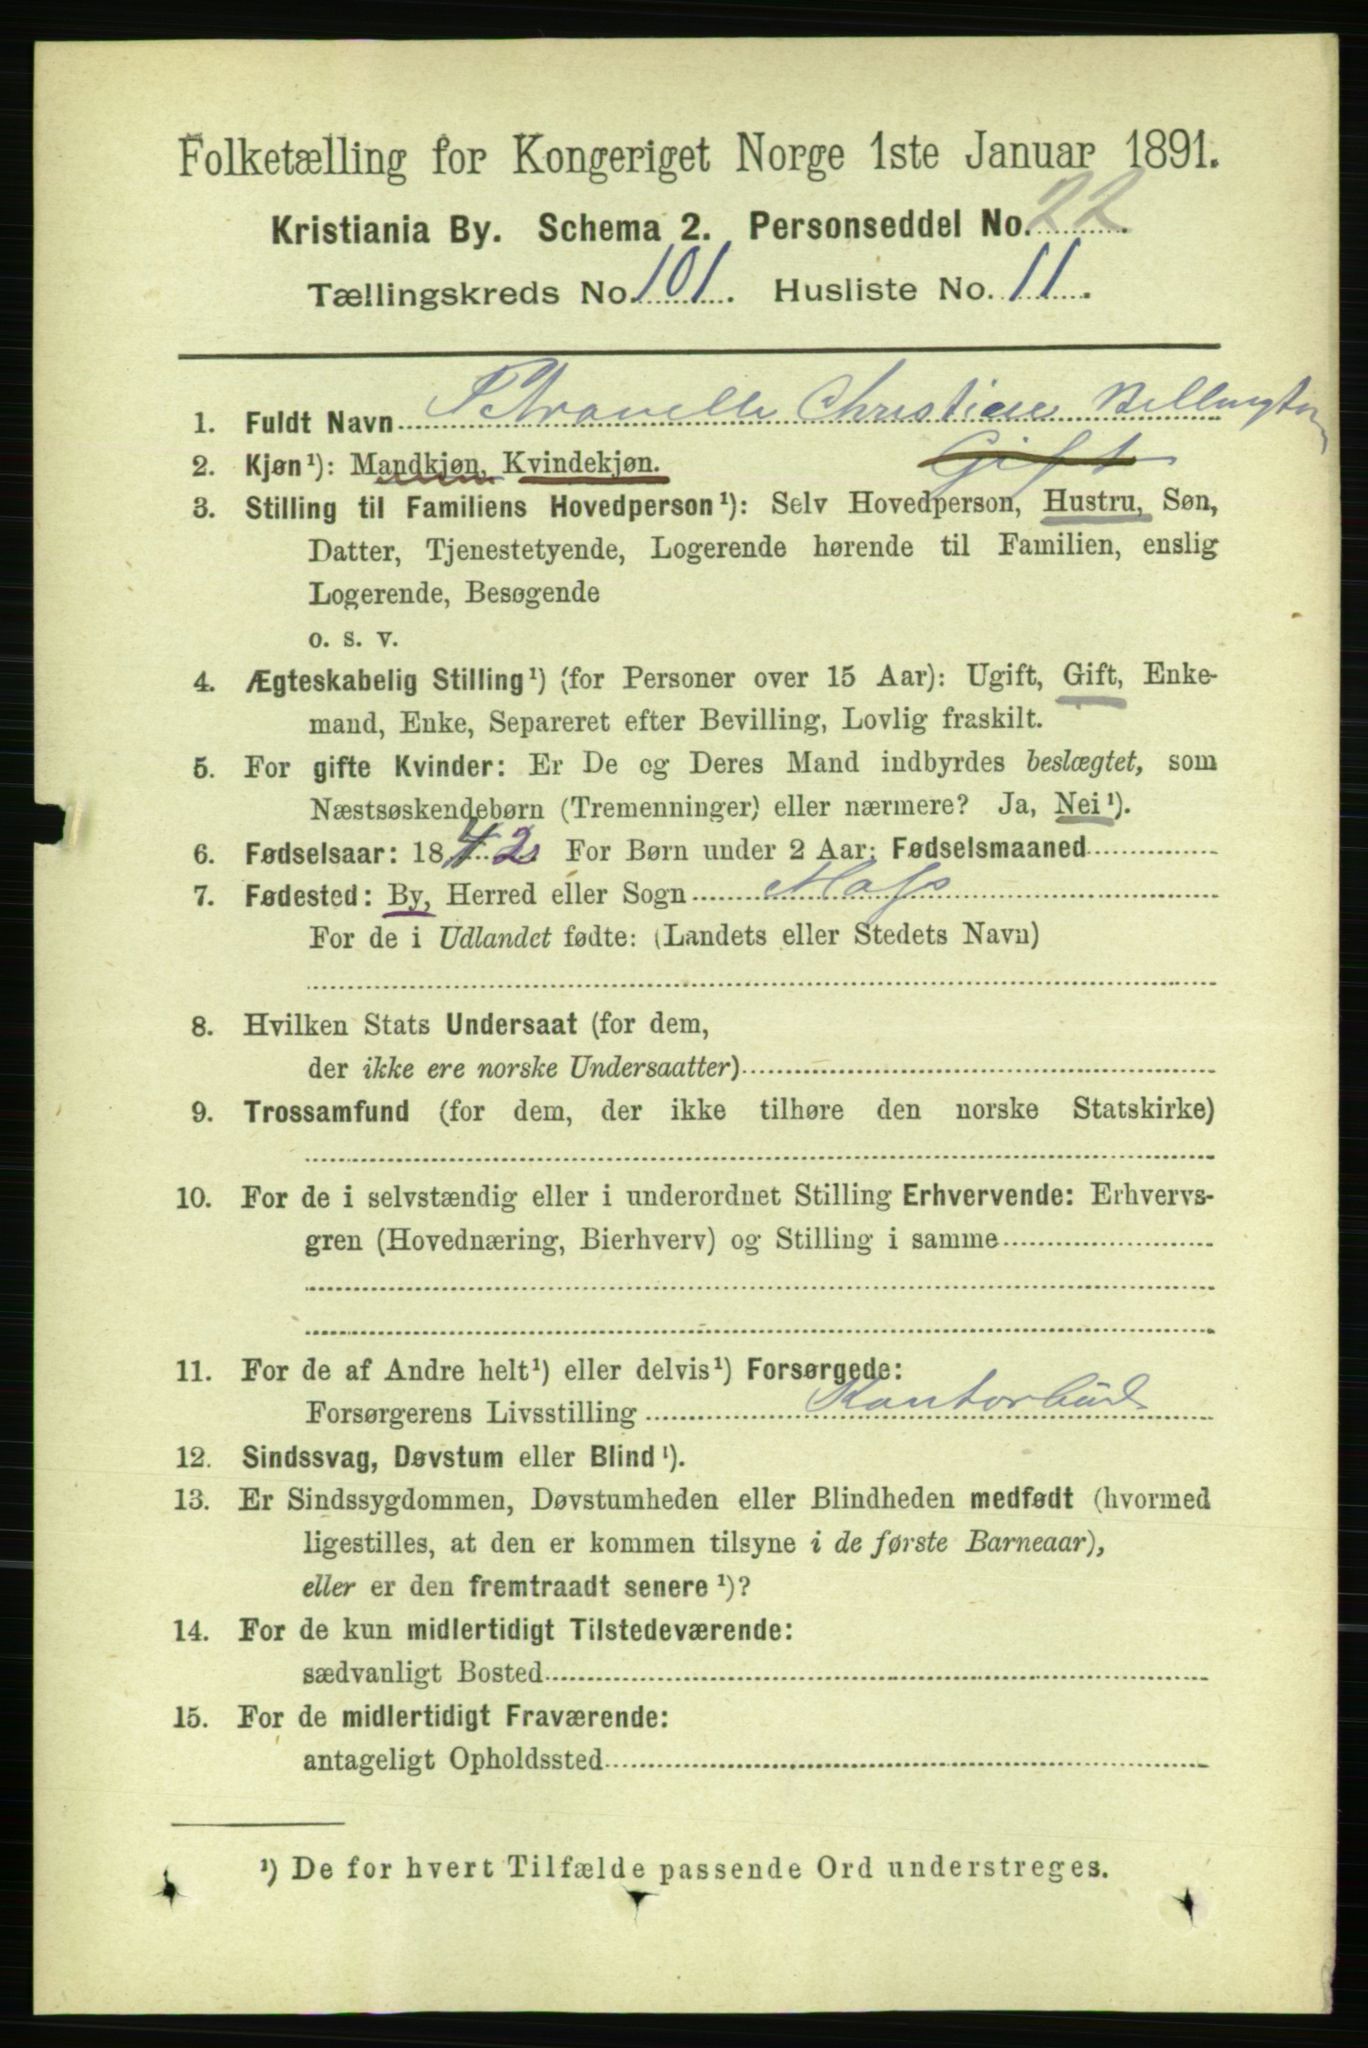 Folketælling for Kongeriget Norge 1ste Januar 1891.
Kristiania By. Schema 2. Personseddel No. 22.
Tællingskreds No. 101. Husliste No. 11.
1. Fuldt Navn Petronelle Christiese Bellington
2. Kjøn¹): Mandkjøn, Kvindekjøn. Gift
3. Stilling til Familiens Hovedperson¹): Selv Hovedperson, Hustru, Søn,
Datter, Tjenestetyende, Logerende hørende til Familien, enslig
Logerende, Besøgende
o. s. v.
4. Ægteskabelig Stilling¹) (for Personer over 15 Aar): Ugift, Gift, Enke-
mand, Enke, Separeret efter Bevilling, Lovlig fraskilt.
5. For gifte Kvinder: Er De og Deres Mand indbyrdes beslægtet, som
Næstsøskendebørn (Tremenninger) eller nærmere? Ja, Nei¹).
6. Fødselsaar: 1842 For Børn under 2 Aar: Fødselsmaaned
7. Fødested: By, Herred eller Sogn Moss
For de i Udlandet fødte: (Landets eller Stedets Navn)
8. Hvilken Stats Undersaat (for dem,
der ikke ere norske Undersaatter)
9. Trossamfund (for dem, der ikke tilhøre den norske Statskirke)
10. For de i selvstændig eller i underordnet Stilling Erhvervende: Erhvervs-
gren (Hovednæring, Bierhverv) og Stilling i samme
11. For de af Andre helt¹) eller delvis¹) Forsørgede:
Forsørgerens Livsstilling Kontorbud
12. Sindssvag, Døvstum eller Blind¹).
13. Er Sindssygdommen, Døvstumheden eller Blindheden medfødt (hvormed
ligestilles, at den er kommen tilsyne i de første Barneaar),
eller er den fremtraadt senere¹)?
14. For de kun midlertidigt Tilstedeværende:
sædvanligt Bosted
15. For de midlertidigt Fraværende:
antageligt Opholdssted
¹) De for hvert Tilfælde passende Ord understreges.